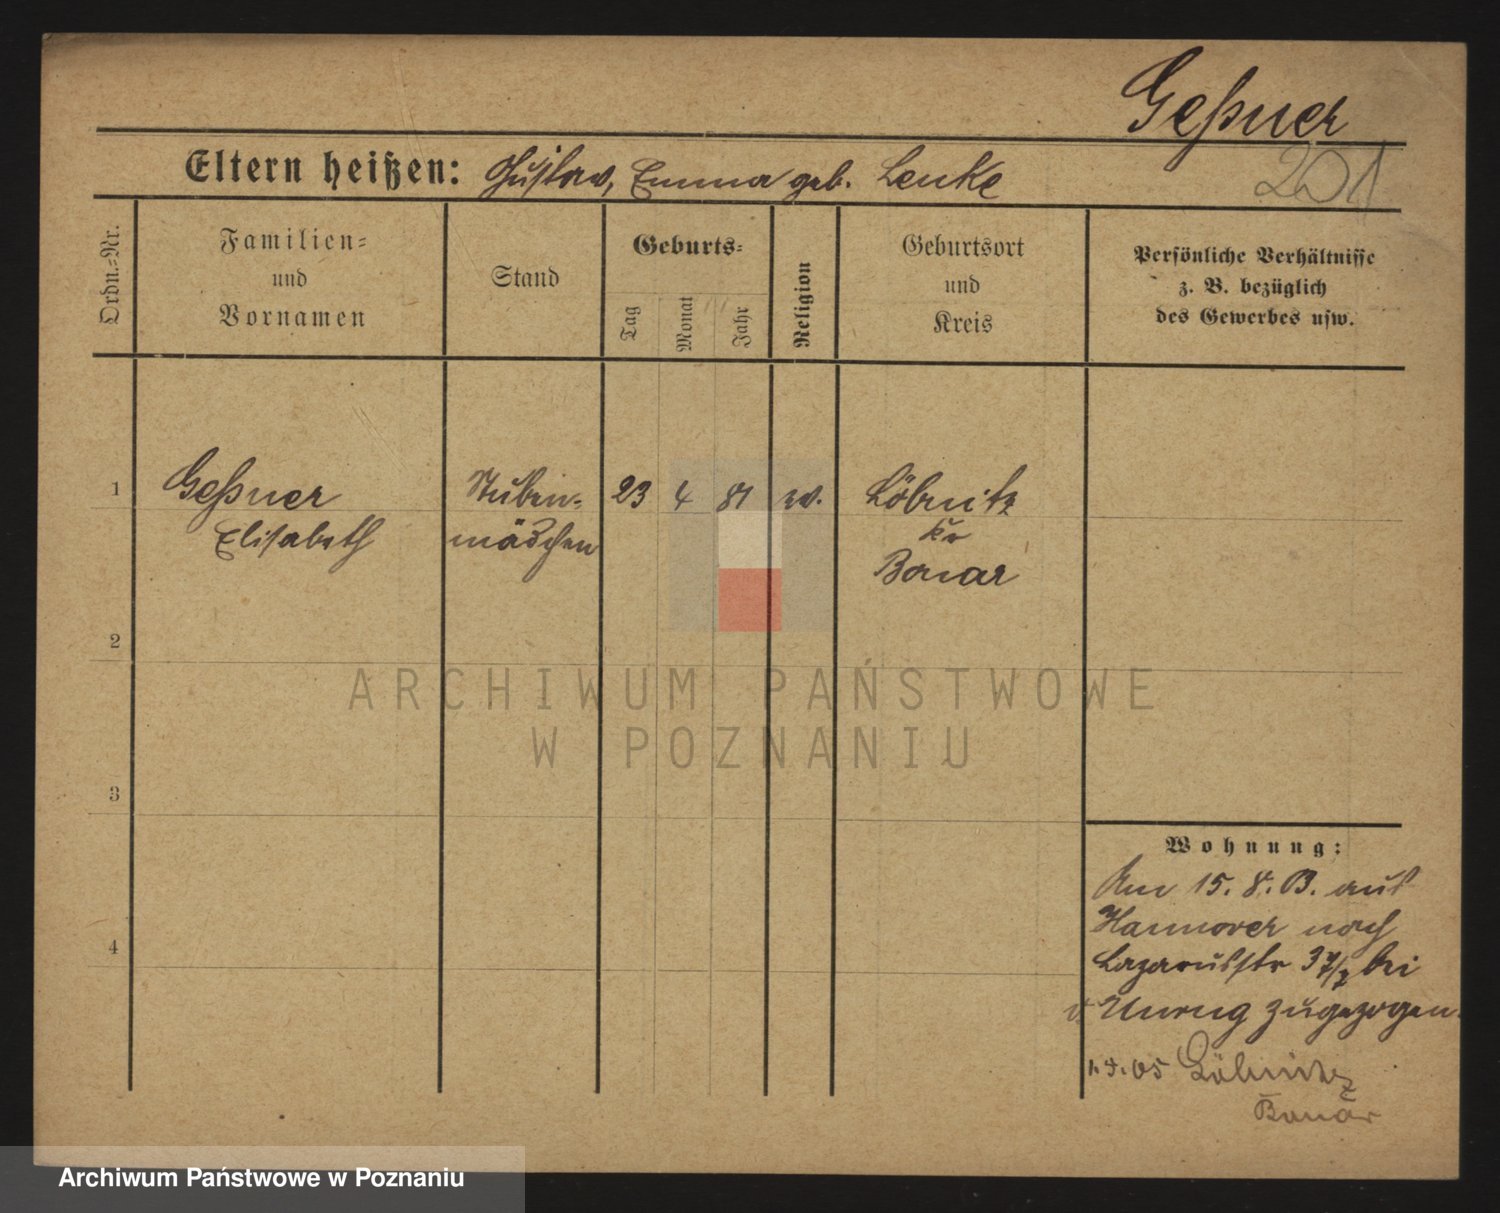 Geßner
201
Eltern heißen: Gustav, Emma geb. Lenke
Ordn.-Nr.
Familien-
und
Vornamen
Stand
Geburts-
Tag
Monat
Jahr
Religion
Geburtsort
und
Kreis
Persönliche Verhältnisse
z. B. bezüglich
des Gewerbes usw.
1
Geßner
Elisabeth
Stuben-
mädchen
23
4
81
ev.
Löbnitz
Kr
Bomst
2
3
4
Wohnung:
Am 15. 8. 03. aus
Hannover nach
Lazarusstr 3 bei
v Unrug zugezogen.
1.4.05 Löbnitz
ARCHIWUM PAŃSTWOWE
W POZNANIU
Archiwum Państwowe w Poznaniu